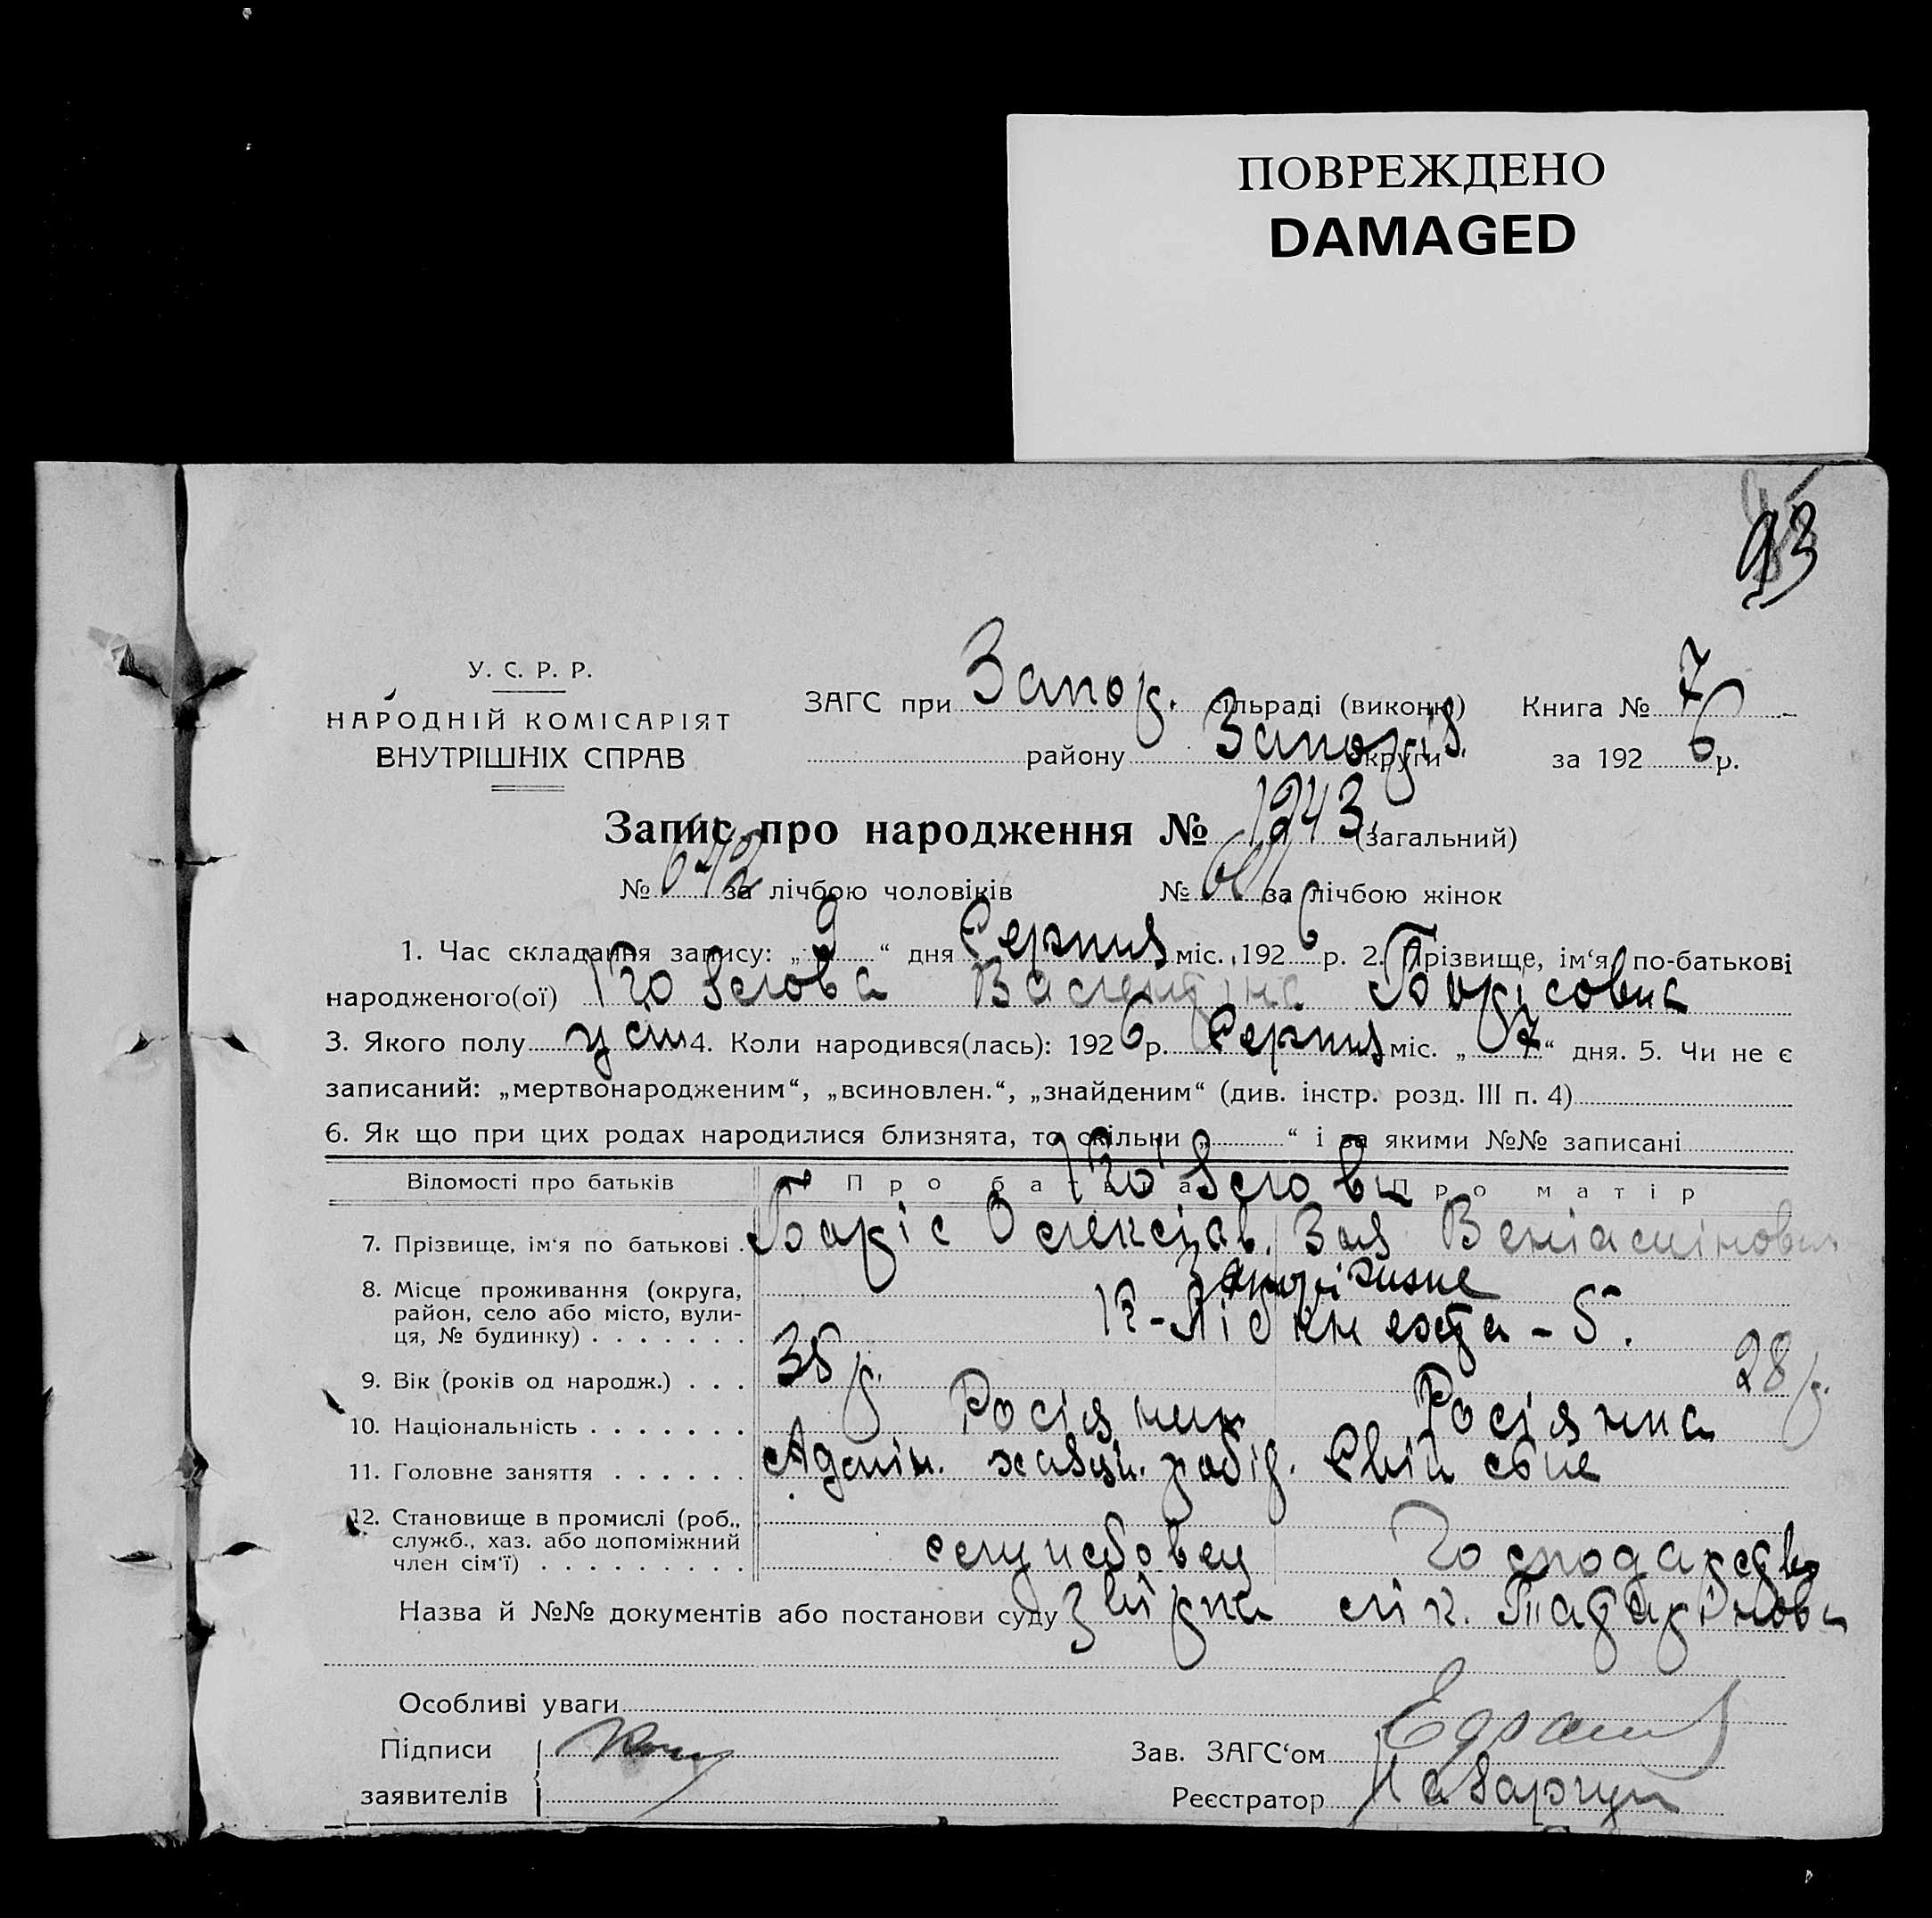 ПОВРЕЖДЕНО
DAMAGED
93
У. С. Р. Р.
НАРОДНІЙ КОМІСАРІЯТ
ВНУТРІШНІХ СПРАВ
ЗАГС при Запор. сільраді (виконк) Книга № 7
району Запоріз. округи за 1926 р.
Запис про народження № 1243 (загальний)
№ 642 за лічбою чоловіків № 601 за лічбою жінок
1. Час складання запису: „9“ дня Серпня міс. 1926 р. 2. Прізвище, ім'я, по-батькові
народженого(ої) Козлова Валентіна Борісовна
3. Якого полу жін 4. Коли народився(лась): 1926 р. Серпня міс. „7“ дня. 5. Чи не є
записаний: „мертвонародженим“, „всиновлен.“, „знайденим“ (див. інстр. розд. III п. 4)
6. Як що при цих родах народилися близнята, то скільки „ “ і за якими №№ записані
Відомості про батьків Про батька Про матір
Козлови
7. Прізвище, ім'я по батькові Боріс Олексієв. Зоя Веніаміновна
8. Місце проживання (округа, Запоріжжє
район, село або місто, вули- К-Лібкнехта - 5.
ця, № будинку)
9. Вік (років од народж.) 35 р. 28 р.
10. Національність Росіянин Росіянка
11. Головне заняття Адмін. робід. Своє
12. Становище в промислі (роб.,
служб., хаз. або допоміжний службовец Господарство
член сім'ї)
Назва й №№ документів або постанови суду лік. Татарінова
Особливі уваги
Підписи
заявителів
Зав. ЗАГС'ом
Реєстратор